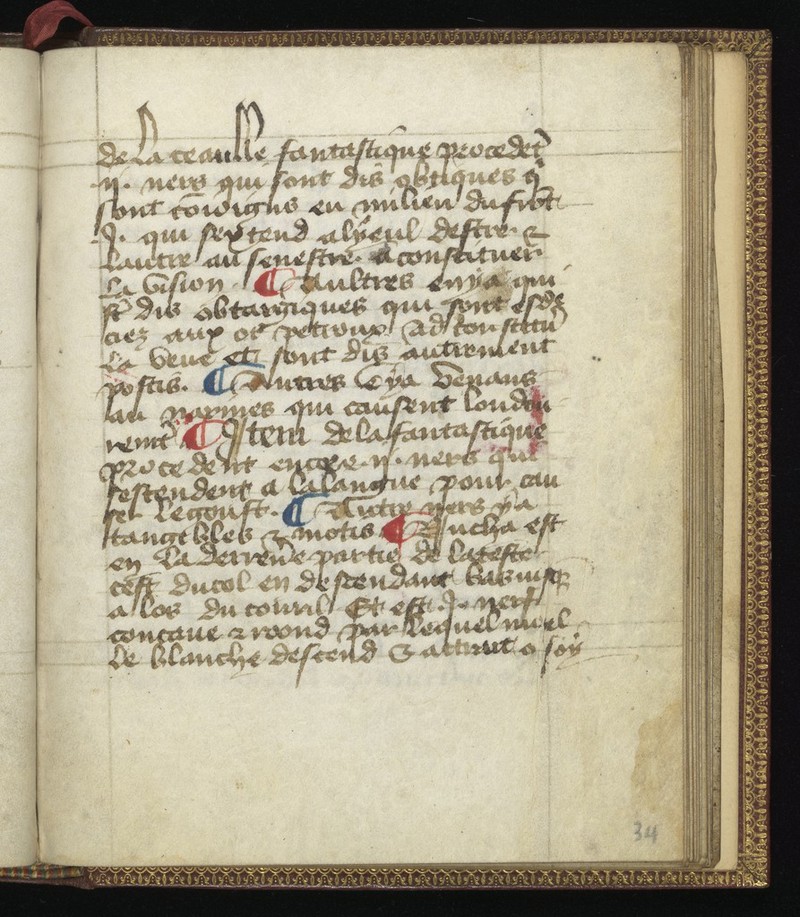 de la ceaulle fantastique procedēt
.ij. ners qui sont dis obtiques q̄
sont cōioigns en milien du frōt
.J. qui sextend a lyeul destre &
lautre au senestre a constituer
la vision ¶ aultres en y a qui
sōt dis obtargiques qui sont esd
ciez aux os petroux Ad constitu
la veue et sont dis autrement
postis. ¶ Autres Cya venans
au narines qui causent
remt ¶ Jtem de la fantastique
procedent encore .ij. ners qui
sestendent a la langue pour cau
ser le goust. ¶ Autre ners y a
tangibles & motis ¶ Nucha est
en la derreñe partie de la teste
cest du col en descendant bas iusq
a los du Et est .J. nerf
concaue & roond par lequel muel
le blanche descend & attrait a soy
34